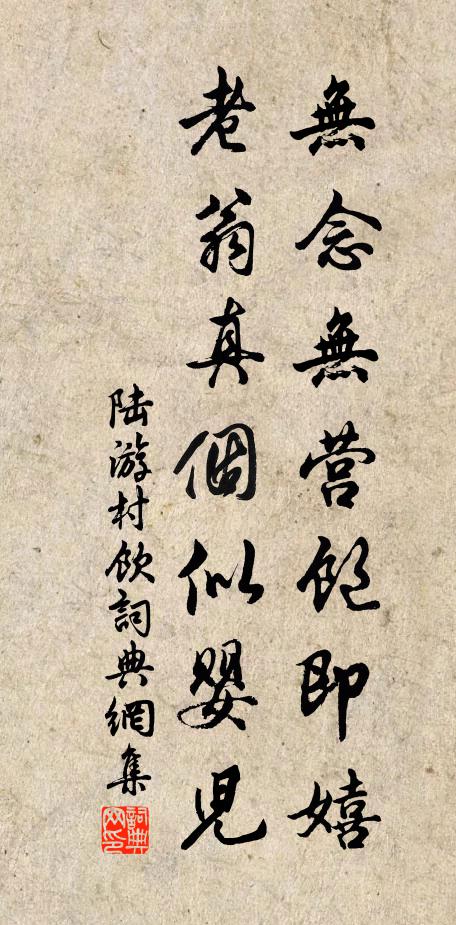 無念無營飽即嬉
老翁真個似嬰兒
陆游村飲詞典網集
詞典網印